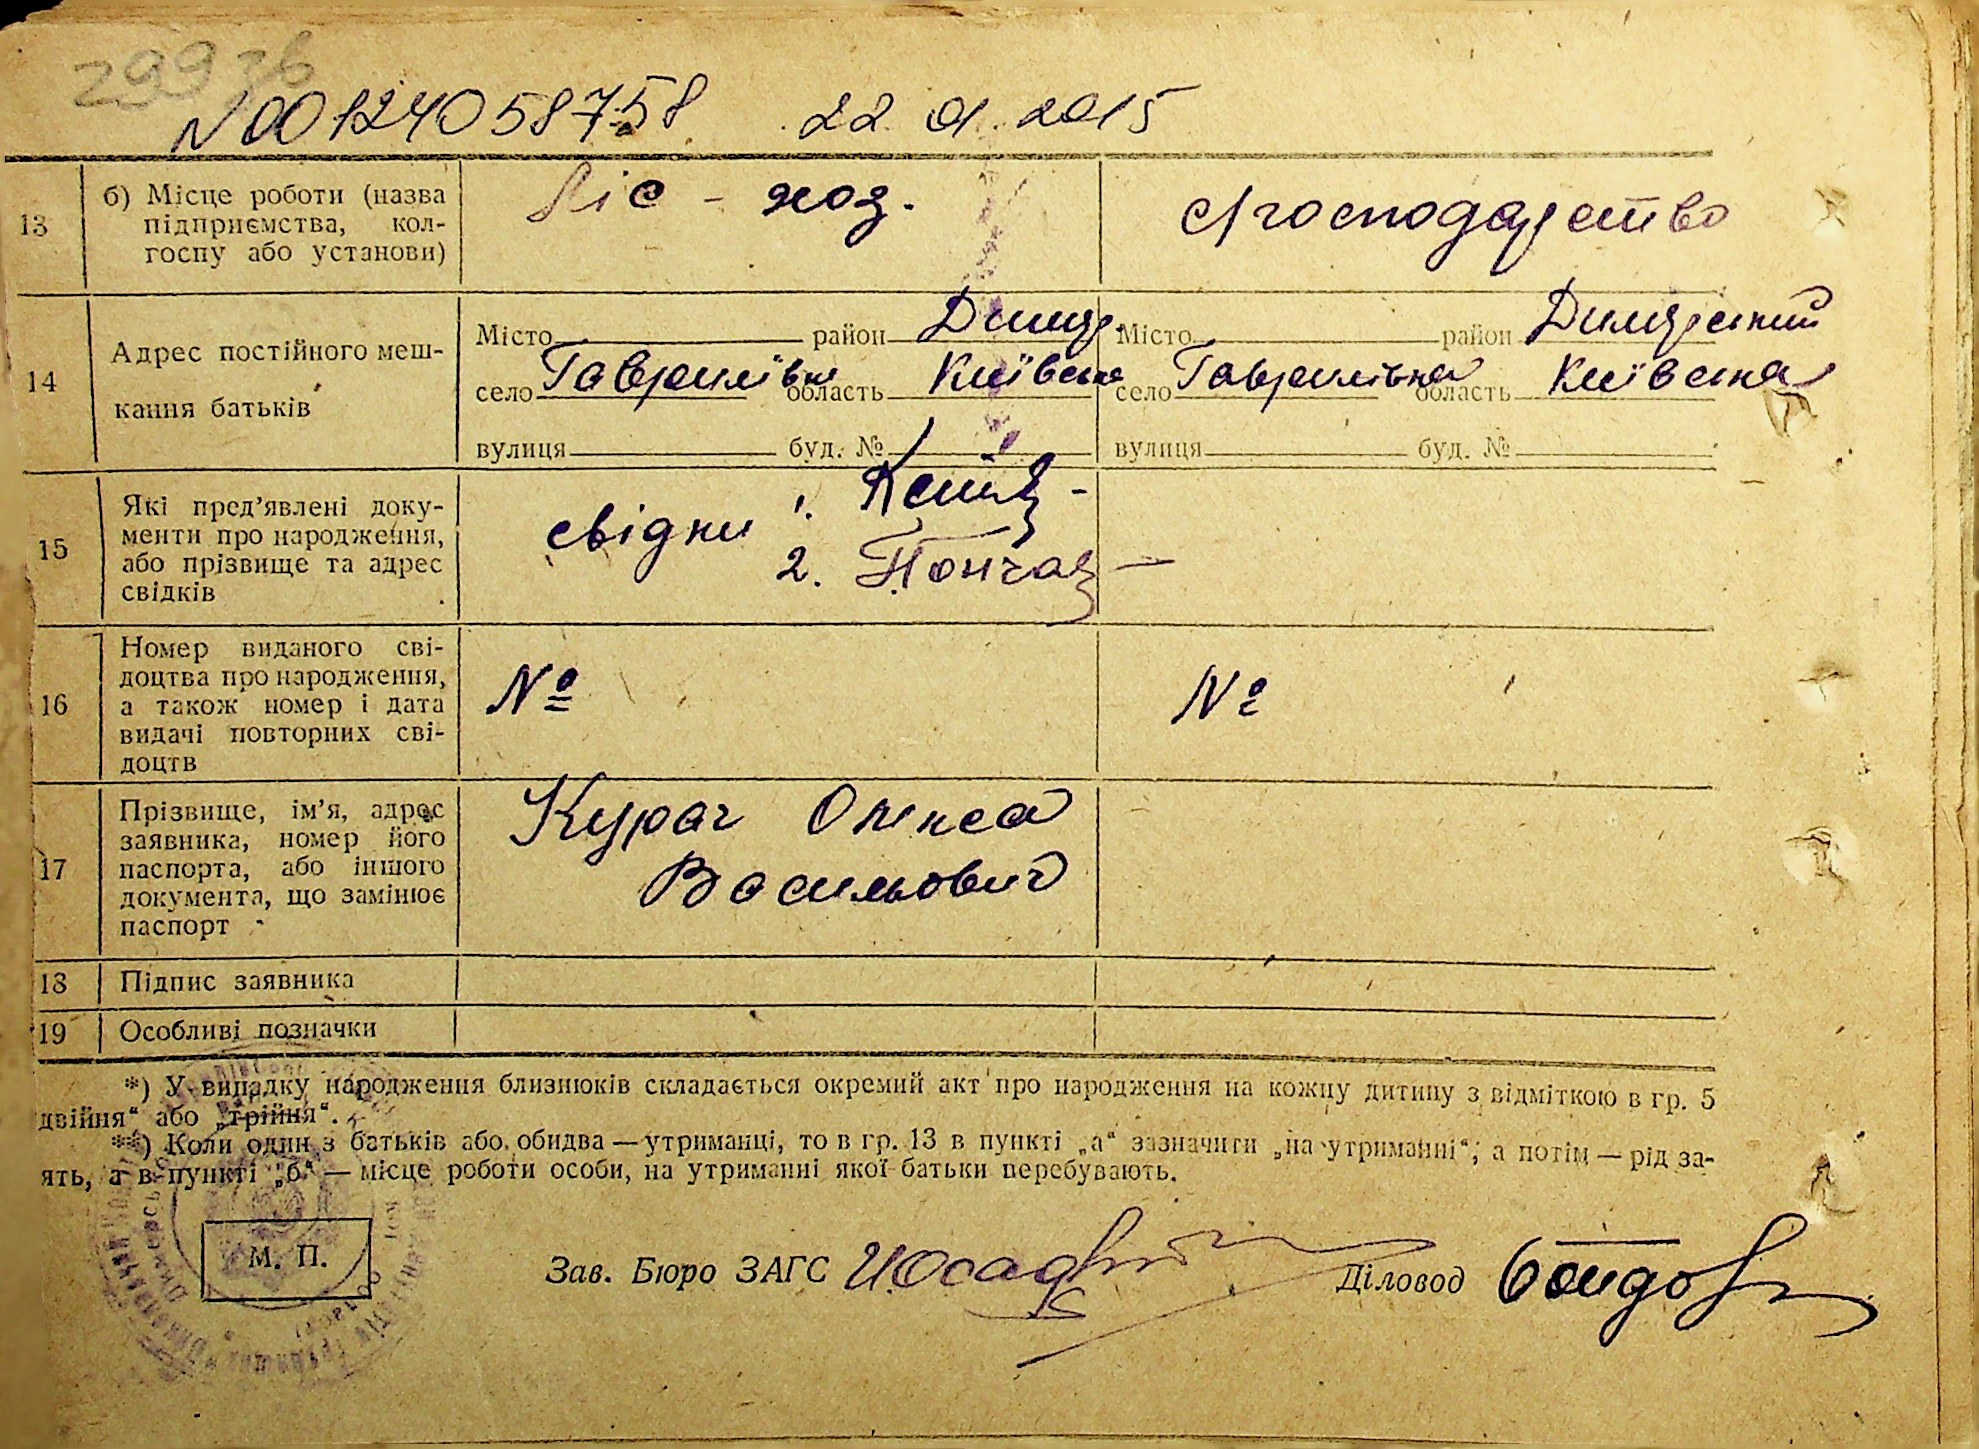 299 зв
N 00124058758 22.01.2015
13
б) Місце роботи (назва
підприємства, кол-
госпу або установи)
Ліс - хоз.
с/господарство
14
Адрес постійного меш-
кання батьків
Місто район Димер.
село Гаврилівка область Київська
вулиця буд. №
Місто район Димерський
село Гаврилівка область Київська
вулиця буд. №
15
Які пред’явлені доку-
менти про народження,
або прізвище та адрес
свідків
свідки 1.
2.
16
Номер виданого сві-
доцтва про народження,
а також номер і дата
видачі повторних сві-
доцтв
№
№
17
Прізвище, ім’я, адрес
заявника, номер його
паспорта, або іншого
документа, що замінює
паспорт
Курач Олекса
Васильович
18 Підпис заявника
19 Особливі позначки
*) У випадку народження близнюків складається окремий акт про народження на кожну дитину з відміткою в гр. 5
двійня“ або „трійня“.
**) Коли один з батьків або обидва — утриманці, то в гр. 13 в пункті „а“ зазначити „на утриманні“, а потім — рід за-
ять, а в пункті „б“ — місце роботи особи, на утриманні якої батьки перебувають.
М. П.
Зав. Бюро ЗАГС
Діловод